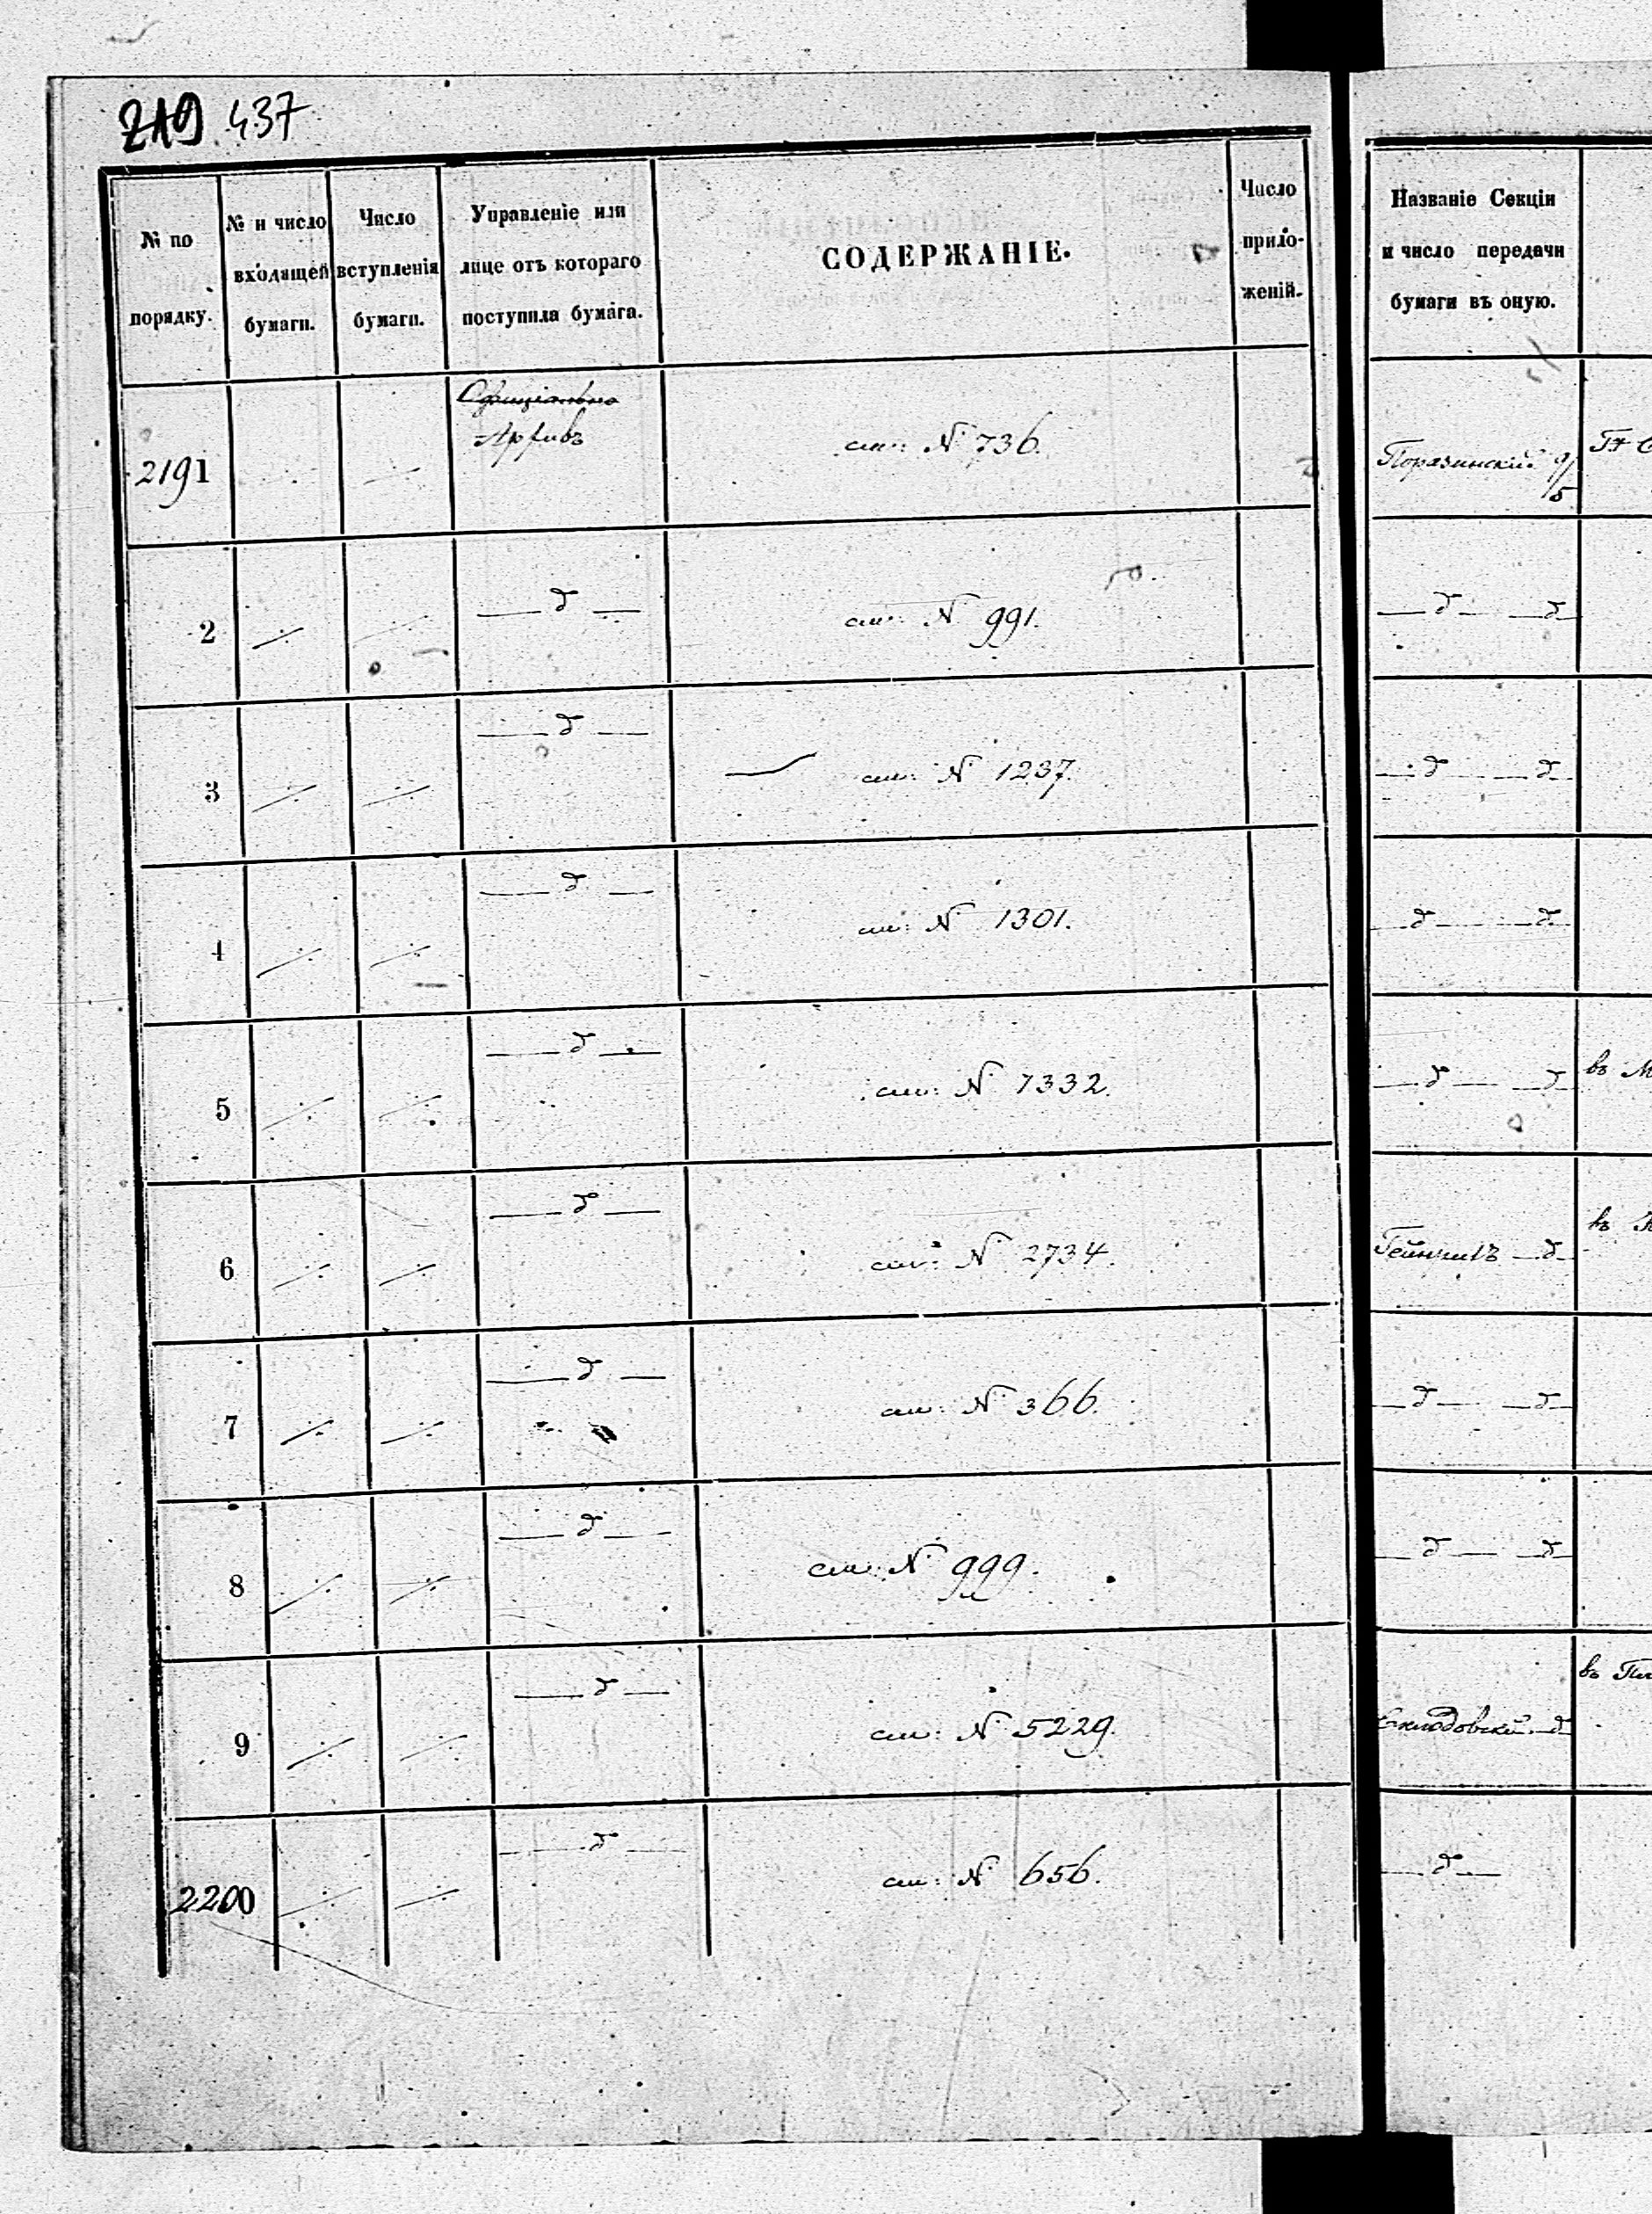 219 437
№ по порядку.
№ и число входящей бумаги.
Число вступленія бумаги.
Управленіе или лице отъ котораго поступила бумага.
СОДЕРЖАНІЕ.
Число приложеній.
Названіе Секціи и число передачи бумаги въ оную.
2191 Архивъ см: № 736. 9/5
2 ⁒ ⁒ — д — см: № 991. — д — — д —
3 ⁒ ⁒ — д — см: № 1237. — д — — д —
4 ⁒ ⁒ — д — см: № 1301. — д — — д —
5 ⁒ ⁒ — д — см: № 1332. — д — — д — въ М
6 ⁒ ⁒ — д — см: № 2734. — д — въ
7 ⁒ ⁒ — д — см: № 366. — д — — д —
8 ⁒ ⁒ — д — см: № 999. — д — — д —
9 ⁒ ⁒ — д — см: № 5229. Склодовскій — д — въ
2200 ⁒ ⁒ — д — см: № 656. — д —